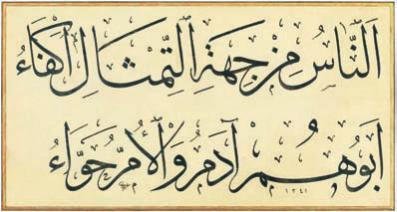 اَلنَّاسُ مِنْ جِهَةِ التِّمْثَالِ اَكْفَاءُ
اَبُوهُمُ آدَمُ وَالْأُمُّ حَوَّاءُ
١٣٤١